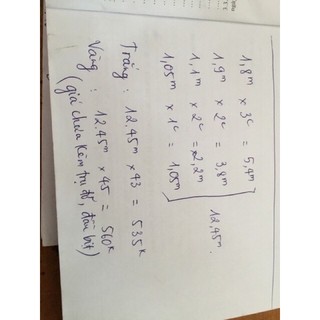 1,8m x 3c = 5,4m
1,9m x 2c = 3,8m
1,1m x 2c = 2,2m
1,05m x 1c = 1,05m
12,45m.
Trắng : 12.45m x 43 = 535k
Vàng : 12.45m x 45 = 560k
(giá chưa kèm trụ đỡ, đầu bịt)